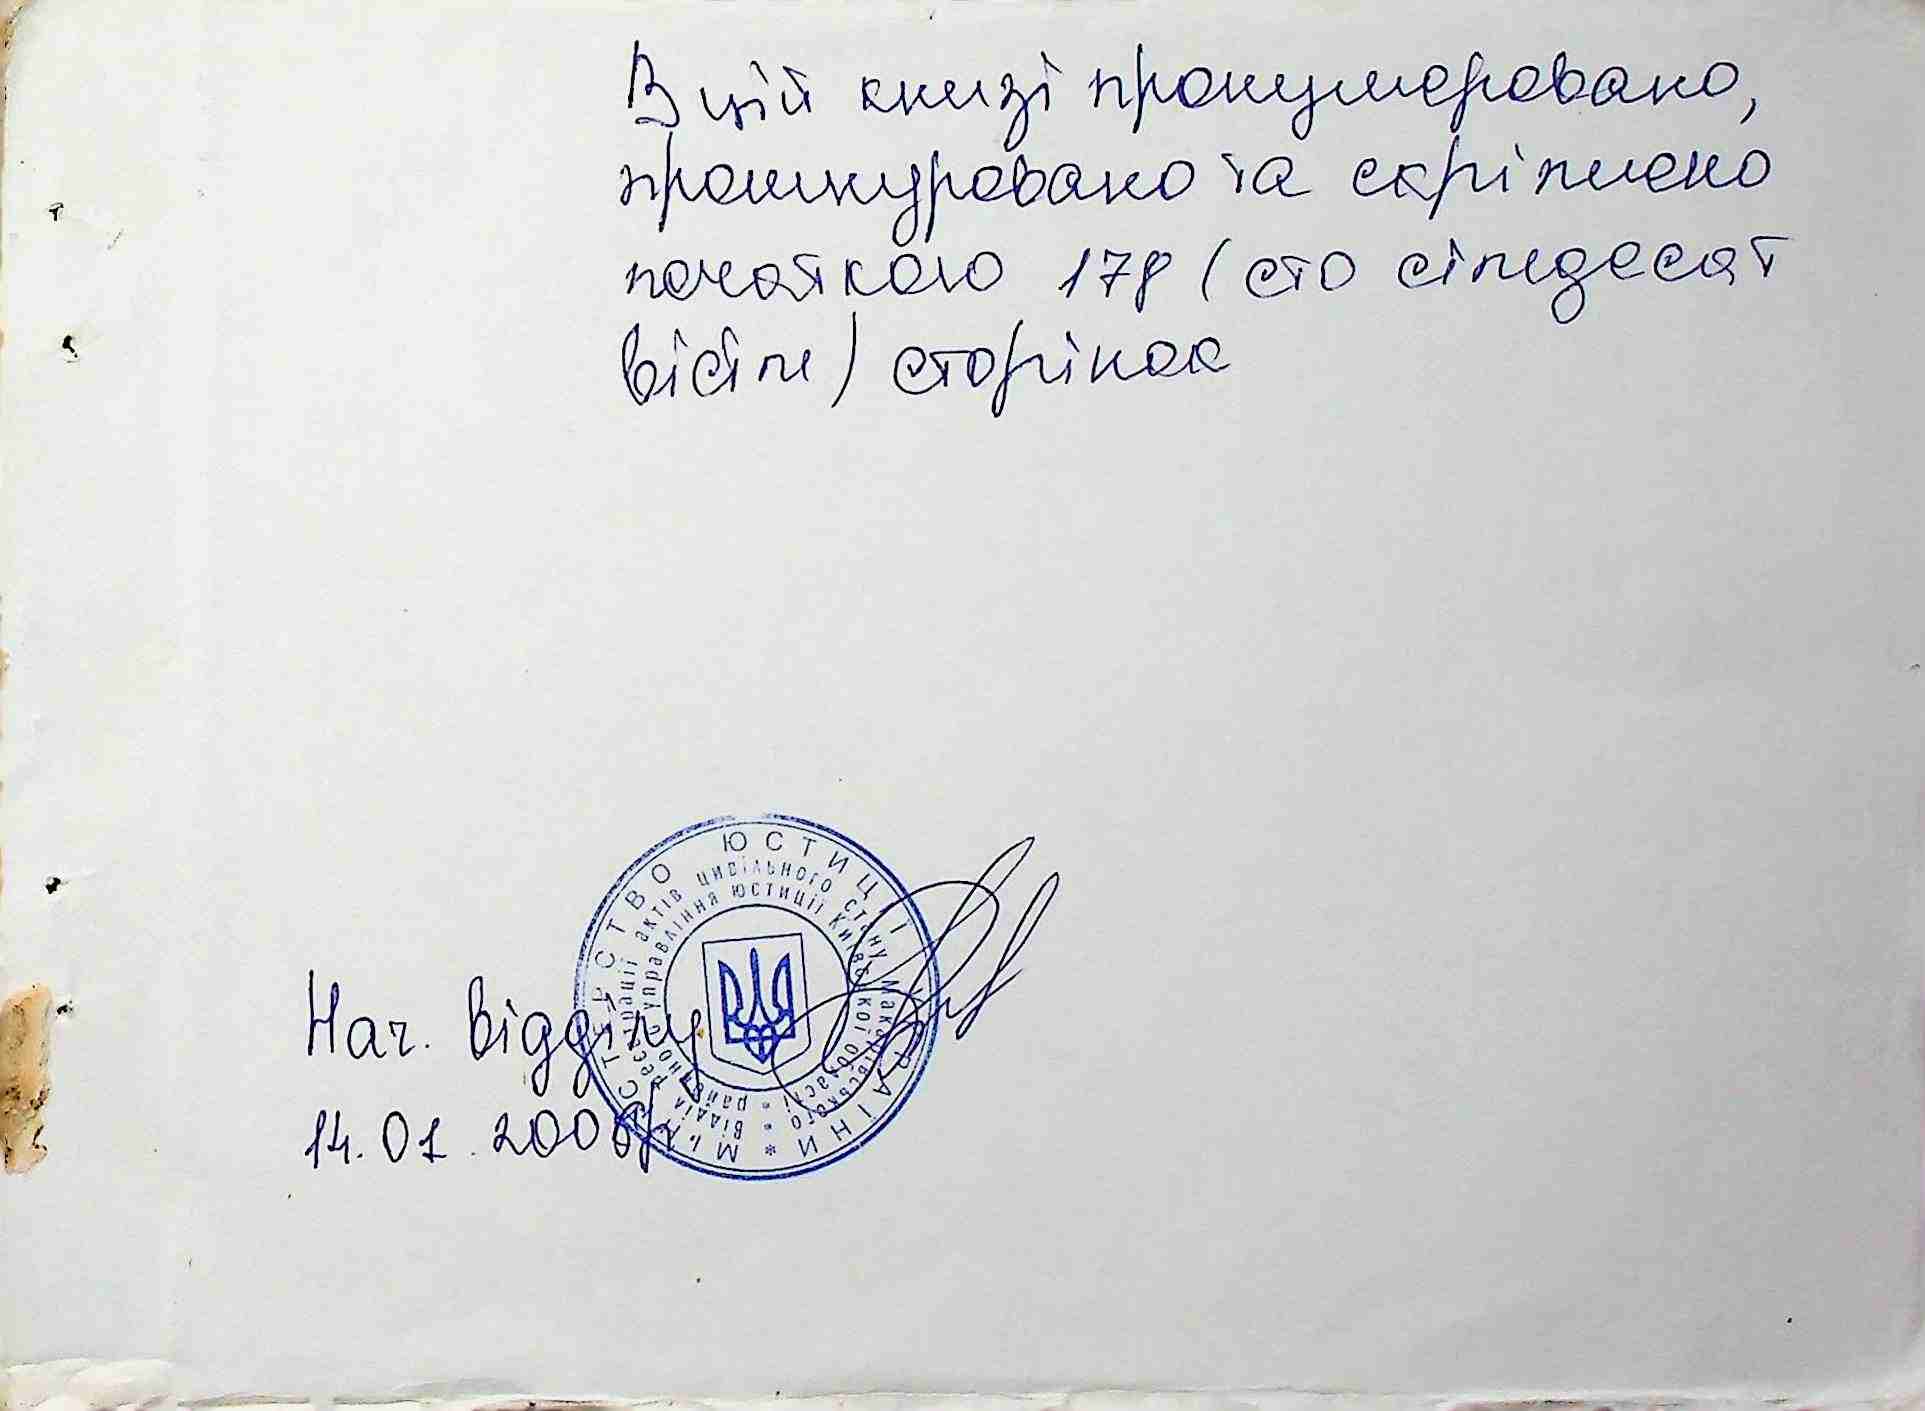 В цій книзі пронумеровано,
прошнуровано та скріплено
печаткою 178 (сто сімдесят
вісім) сторінок
МІНІСТЕРСТВО ЮСТИЦІЇ УКРАЇНИ *
Відділ реєстрації актів цивільного стану Макарівського
районного управління юстиції Київської області
Нач. відділу
14.01.2006р.